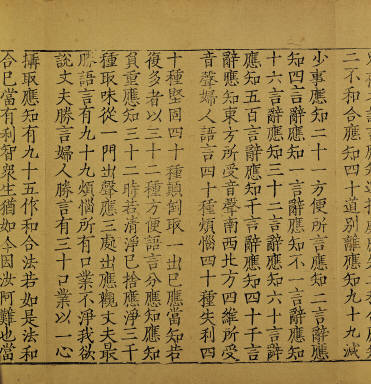 二不和合應知四十道別離應知九十九減
少事應知二十一方便所言應知二言辭應
知四言辭應知一言辭應知不一言辭應知
十六言辭應知三十二言辭應知六十言辭
應知五百言辭應知千言辭應知四十千言
辭應知東方所受音聲南西北方四維所受
音聲婦人語言四十種煩惱四十種失利四
十種堅固四十種顛倒取一出已應當知若
復多者以三十二種方便語言分應知應知
負重應知三十二時若清淨已捨應淨三千
種取味從一門出聲應三處出應觀丈夫最
勝語言有九十九煩惱所有口業不淨我欲
說丈夫勝言婦人勝言有三十口業以一心
搆取應知有九十五作和合法若如是法和
合已當有利智衆生猶如今因汝阿難也當